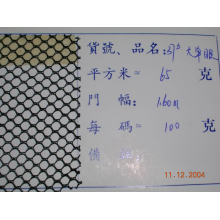 貨號、品名:57# 大單眼
平方米= 65 克
門 幅: 1.60m
每 碼= 100 克
備
11.12.2004